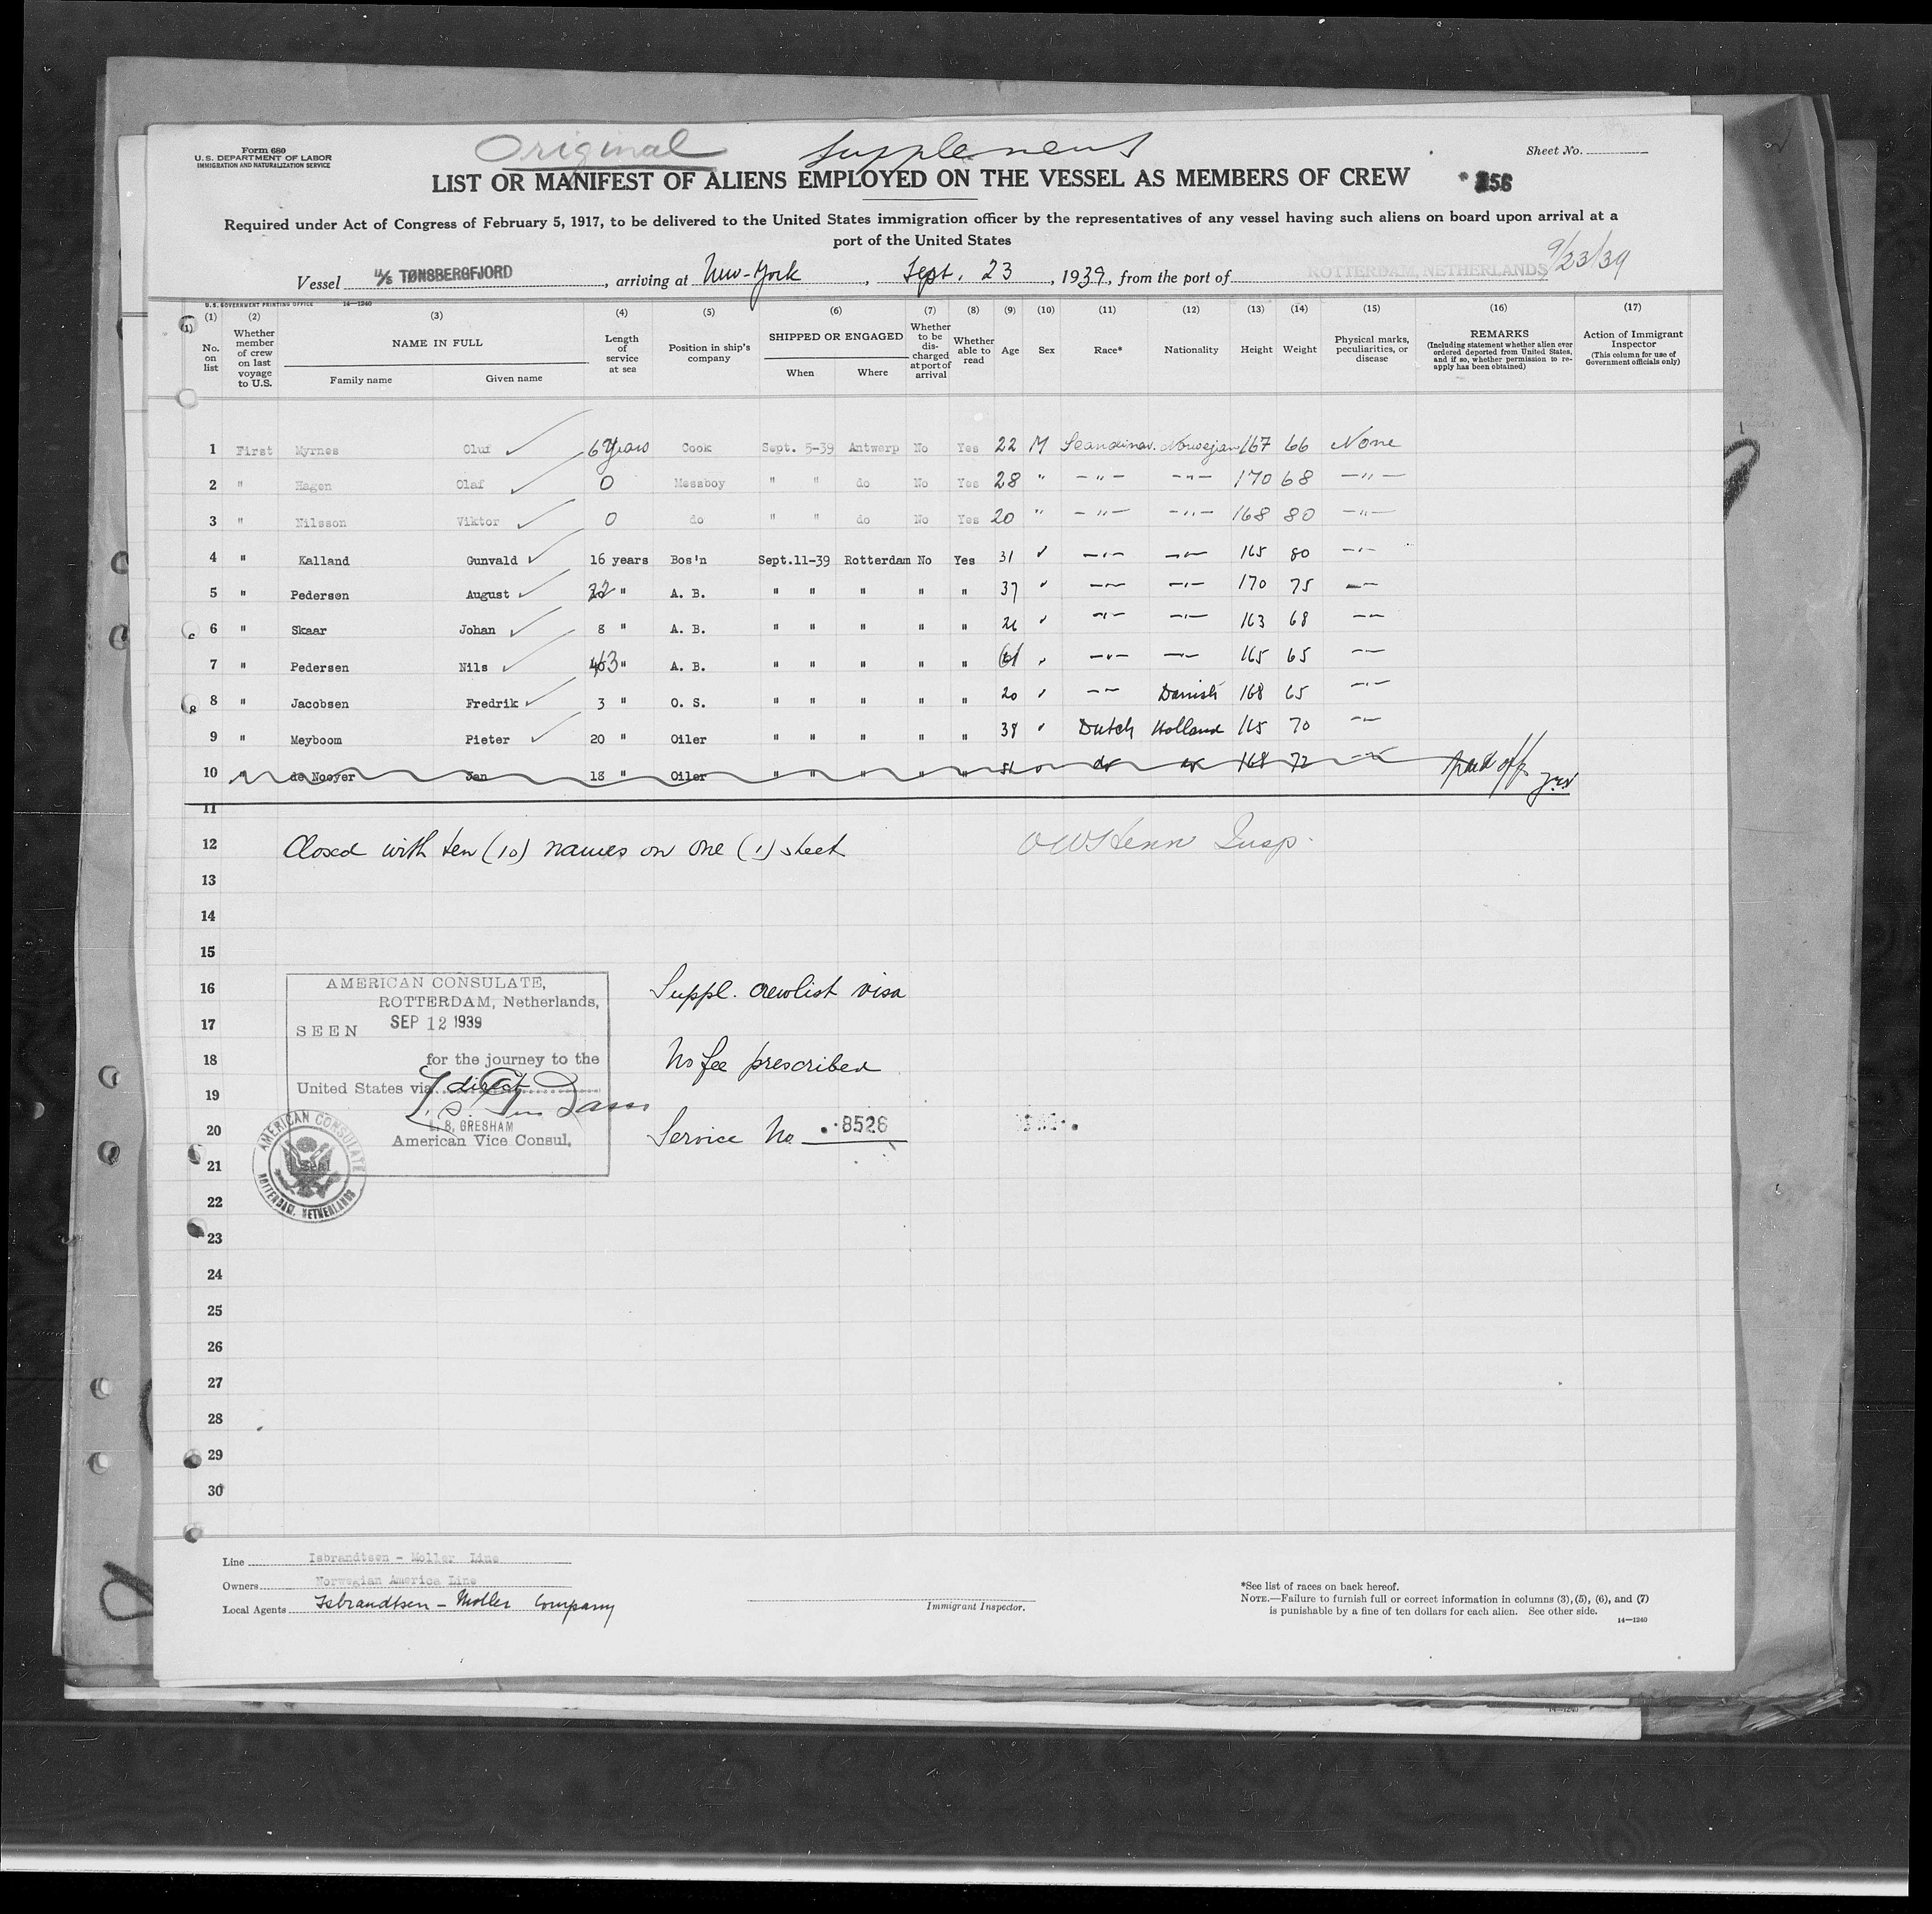 Form 680
U.S. DEPARTMENT OF LABOR
IMMIGRATION AND NATURALIZATION SERVICE
Original Supplement
Sheet No.
LIST OR MANIFEST OF ALIENS EMPLOYED ON THE VESSEL AS MEMBERS OF CREW
Required under Act of Congress of February 5, 1917, to be delivered to the United States immigration officer by the representatives of any vessel having such aliens on board upon arrival at a
port of the United States
9/23/39
Vessel M/S TØNSBERGFJORD, arriving at New-York, Sept. 23, 1939, from the port of ROTTERDAM, NETHERLANDS
U.S. GOVERNMENT PRINTING OFFICE 14—1240
(1) (2) (3) (4) (5) (6) (7) (8) (9) (10) (11) (12) (13) (14) (15) (16) (17)
No. on list
Whether member of crew on last voyage to U.S.
NAME IN FULL
Family name Given name
Length of service at sea
Position in ship's company
SHIPPED OR ENGAGED
When Where
Whether to be discharged at port of arrival
Whether able to read
Age
Sex
Race*
Nationality
Height
Weight
Physical marks, peculiarities, or disease
REMARKS
(Including statement whether alien ever ordered deported from United States, and if so, whether permission to reapply has been obtained)
Action of Immigrant Inspector
(This column for use of Government officials only)
1 First Myrnes Oluf 6 Years Cook Sept. 5-39 Antwerp No Yes 22 M Scandinav. Norwejian 167 66 None
2 " Hagen Olaf 0 Messboy " " do No Yes 28 " —"— —"— 170 68 —"—
3 " Nilsson Viktor 0 do " " do No Yes 20 " —"— —"— 168 80 —"—
4 " Kalland Gunvald 16 years Bos'n Sept.11-39 Rotterdam No Yes 31 " —"— —"— 165 80 —"—
5 " Pedersen August " A. B. " " " " " 37 " —"— —"— 170 75 —"—
6 " Skaar Johan 8 " A. B. " " " " " 26 " —"— —"— 163 68 —"—
7 " Pedersen Nils " A. B. " " " " " 61 " —"— —"— 165 65 —"—
8 " Jacobsen Fredrik 3 " O. S. " " " " " 20 " —"— Danish 168 65 —"—
9 " Meyboom Pieter 20 " Oiler " " " " " " Dutch Holland 165 70 —"—
10 " de Nooyer Jan 18 " Oiler " " " " " " do do 168 72 —"— paid off
11
12 Closed with ten (10) names on one (1) sheet Insp.
13
14
15
AMERICAN CONSULATE,
16 ROTTERDAM, Netherlands, Suppl. crewlist visa
17 SEEN SEP 12 1939
18 for the journey to the No fee prescribed
19 United States via direct
L. B. GRESHAM
20 American Vice Consul. Service No 8526
21 Seal
AMERICAN CONSULATE
ROTTERDAM, NETHERLANDS
22
23
24
25
26
27
28
29
30
Line Isbrandtsen - Moller Line
Owners Norwegian America Line
Local Agents Isbrandtsen - Moller Company
Immigrant Inspector.
*See list of races on back hereof.
NOTE.—Failure to furnish full or correct information in columns (3), (5), (6), and (7)
is punishable by a fine of ten dollars for each alien. See other side.
14—1240